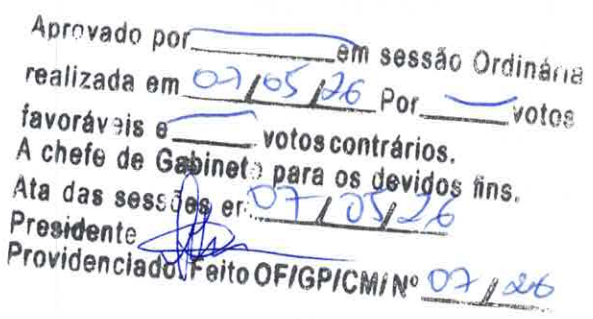 Aprovado por________em sessão Ordinária
realizada em 07/05/26 Por____votos
favoráveis e____votos contrários.
A chefe de Gabinete para os devidos fins.
Ata das sessões em 07/05/26
Presidente
Providenciado/Feito OF/GP/CM/Nº 07/26